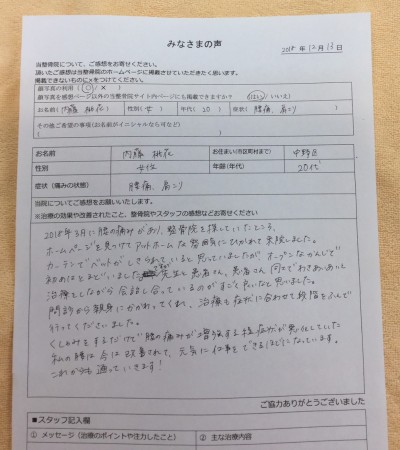 みなさまの声
2018年12月13日
当整骨院について、ご感想をお寄せください。
頂いたご感想は当整骨院のホームページに掲載させていただきたく思います。
掲載できないものに×をつけてください。
顔写真の利用(○/×)
顔写真を感想ページ以外の当整骨院サイト内ページにも掲載できますか?(はい/いいえ)
お名前(内藤 桃花) 性別(女) 年代(20) 症状(腰痛、肩こり
その他ご希望の事項(お名前がイニシャルなら可など)
お名前 内藤 桃花 お住まい(市区町村まで) 中野区
性別 女性 年齢(年代) 20代
症状(痛みの状態) 腰痛、肩こり
当院についてご感想をお願いいたします。
※治療の効果や改善されたこと、整骨院やスタッフの感想などお寄せください
2018年3月に腰の痛みがあり、整骨院を探していたところ、
ホームページを見つけてアットホームな雰囲気にひかれて来院しました。
カーテンでベッドがしきられていると思っていましたが、オープンなかんじで
初めはとまどいました 先生と患者さん、患者さん同士でわきあいあいと
治療をしながら会話し合っているのがすごく良いなと思いました。
問診から親身にかかわってくれ、治療も症状に合わせて段階をふんで
行ってくださいました。
くしゃみをするだけで腰の痛みが増強する程症状が悪化していた
私の腰は今は改善されて、元気に仕事をできるほどになっています。
これからも通っていきます!
ご協力ありがとうございました
■スタッフ記入欄
① メッセージ(治療のポイントや注力したこと) ② 主な治療内容